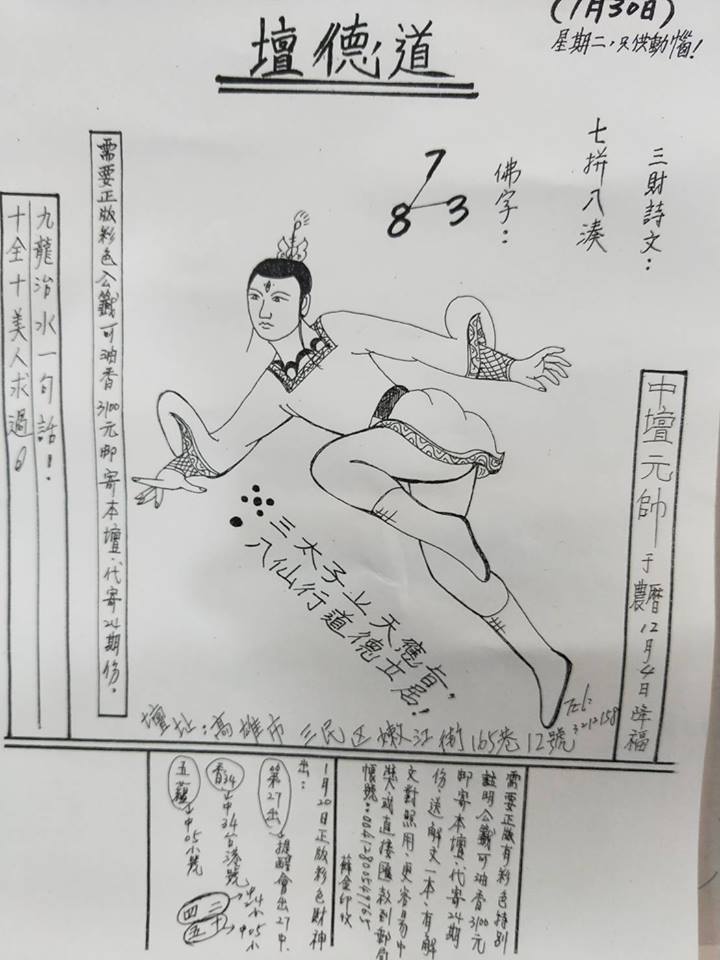 (1月30日)
星期二,只供動惱!
壇德道
三財詩文:
七拼八湊
佛字:
7
8 3
中壇元帥于農曆12月4日降福
需要正版彩色公籤可油香3100元邮寄本壇·代寄24期份。
九龍治水一句話!
十全十美人求過!
三太子上天應旨,
八仙行道德立居!
壇址:高雄市三民区嫩江街165巷12號
需要正版有彩色特别
註明公籤可油香3100元
邮寄本壇·代寄24期
份·送解文一本·有解
文對照用·更容易中
獎·或直接匯款到郵局
1月20日正版彩色財神
出:
第27出
提醒會出27中.
香34
中34台港號
五
中05小號
四二
五十
中24小
中05小